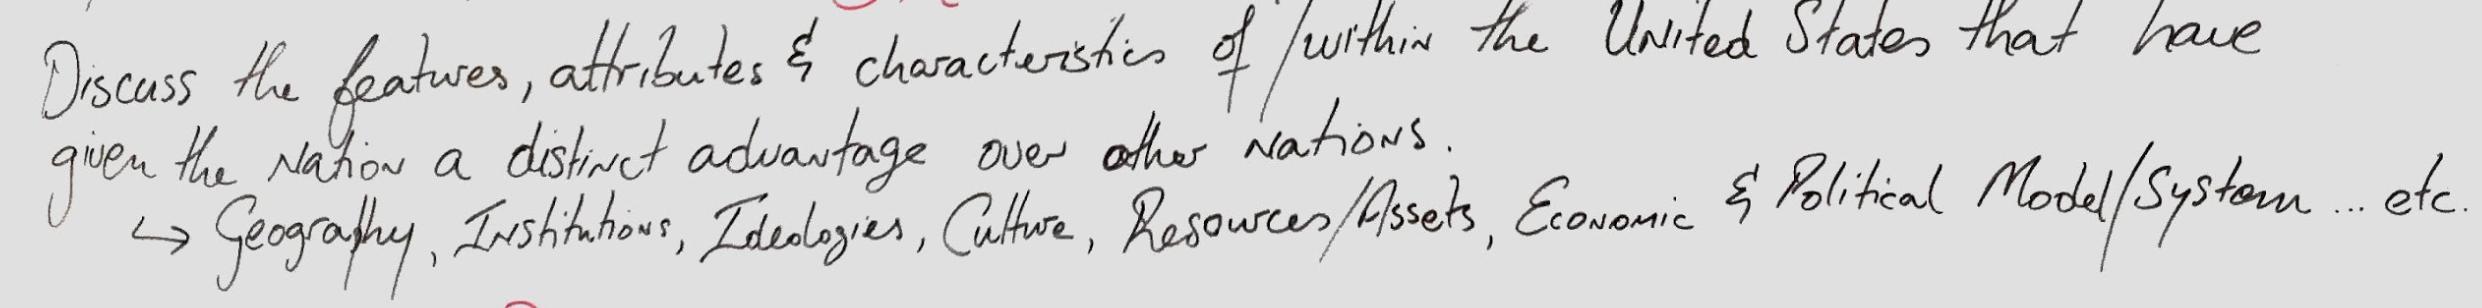 Discuss the features, attributes & characteristics of/within the United States that have
given the Nation a distinct advantage over other Nations.
↳ Geography, Institutions, Ideologies, Culture, Resources/Assets, Economic & Political Model/System... etc.